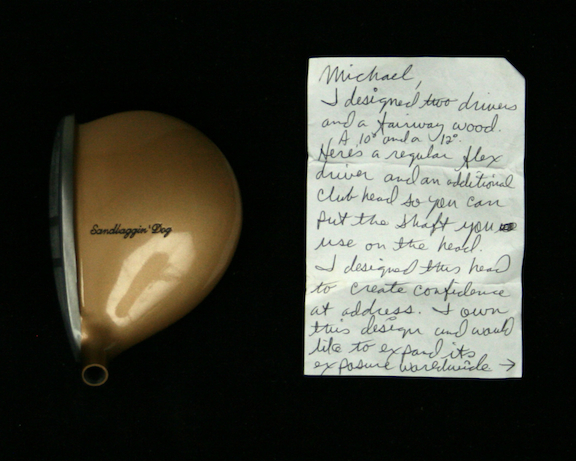 Sandbaggin' Dog
Michael,
I designed two drivers
and a fairway wood.
A 10° and a 12°.
Here's a regular flex
driver and an additional
club head so you can
put the shaft you
use on the head.
I designed this head
to create confidence
at address. I own
this design and would
like to expand its
exposure worldwide →